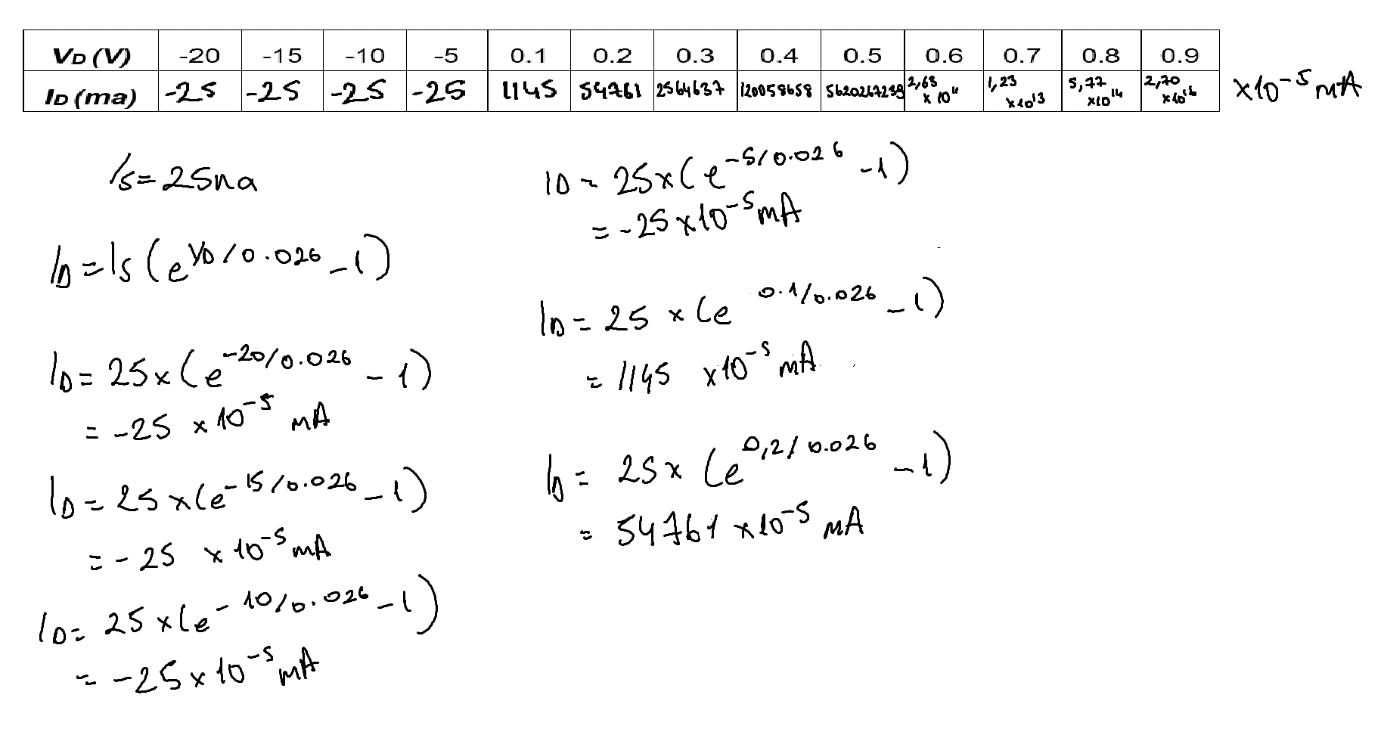 VD (V) -20 -15 -10 -5 0.1 0.2 0.3 0.4 0.5 0.6 0.7 0.8 0.9
ID (ma) -25 -25 -25 -25 1145 54761 2564637 120058658 5620267259 2,63 x 10¹¹ 1,23 x10¹³ 5,77 x10¹⁴ 2,70 x10¹⁶ x10⁻⁵ mA
Is = 25na
ID = Is (e^VD/0.026 -1)
ID = 25x(e^-20/0.026 -1)
= -25 x 10⁻⁵ mA
ID = 25 x(e^-15/0.026 -1)
= -25 x 10⁻⁵ mA
ID = 25 x(e^-10/0.026 -1)
= -25 x 10⁻⁵ mA
ID = 25x(e^-5/0.026 -1)
= -25 x10⁻⁵ mA
ID = 25 x (e^0.1/0.026 -1)
= 1145 x10⁻⁵ mA
ID = 25x (e^0,2/0.026 -1)
= 54761 x10⁻⁵ mA